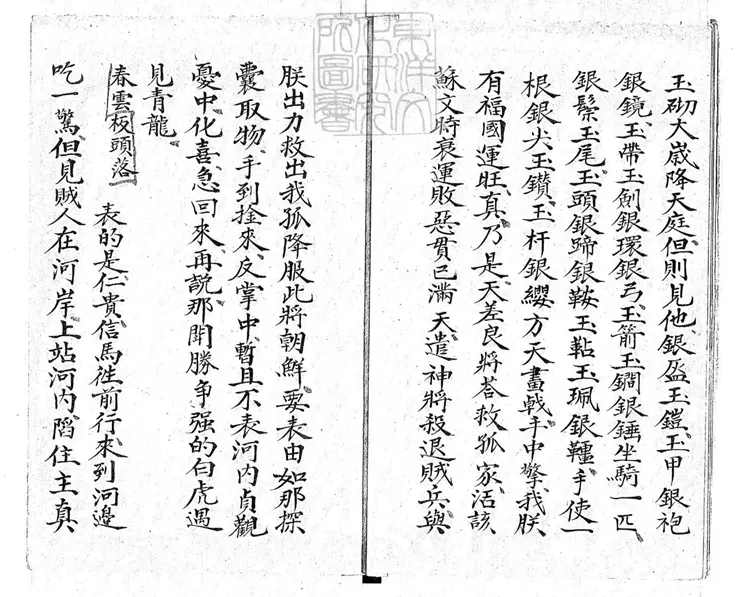 玉砌大歲降天庭但則見他銀盔玉鎧玉甲銀袍
銀鏡玉帶玉劍銀環銀弓玉箭玉鐧銀錘坐騎一匹
銀鬃玉尾玉頭銀蹄銀鞍玉韂玉珮銀韁手使一
根銀尖玉鑽玉杆銀纓方天畫戟手中擎我朕
有福國運旺真乃是天差良將荅救孤家活該
蘇文時衰運敗惡貫已滿天遣神將殺退賊兵與
朕出力救出我孤降服此將朝鮮要表由如那探
囊取物手到捦來反掌中暫且不表河內貞觀
憂中化喜急回來再說那閗勝爭强的白虎過
見青龍
春雲板頭落 表的是仁貴信馬徃前行來到河邉
吃一驚但見賊人在河岸上站河內陷住主真
東洋文化研究所圖書